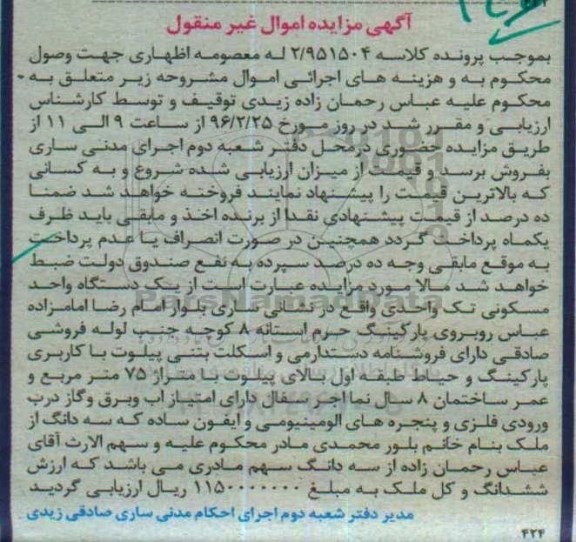 آگهی مزایده اموال غیر منقول
بموجب پرونده کلاسه ۲/۹۵۱۵۰۴ له معصومه اظهاری جهت وصول
محکوم به و هزینه های اجرائی اموال مشروحه زیر متعلق به
محکوم علیه عباس رحمان زاده زیدی توقیف و توسط کارشناس
ارزیابی و مقرر شد در روز مورخ ۹۶/۲/۲۵ از ساعت ۹ الی ۱۱ از
طریق مزایده حضوری درمحل دفتر شعبه دوم اجرای مدنی ساری
بفروش برسد و قیمت از میزان ارزیابی شده شروع و به کسانی
که بالاترین قیمت را پیشنهاد نمایند فروخته خواهد شد ضمنا
ده درصد از قیمت پیشنهادی نقدا از برنده اخذ و مابقی باید ظرف
یکماه پرداخت گردد همچنین در صورت انصراف یا عدم پرداخت
به موقع مابقی وجه ده درصد سپرده به نفع صندوق دولت ضبط
خواهد شد مالا مورد مزایده عبارت است از یک دستگاه واحد
مسکونی تک واحدی واقع در نشانی ساری بلوار امام رضا امامزاده
عباس روبروی پارکینگ حرم استانه ۸ کوچه جنب لوله فروشی
صادقی دارای فروشنامه دستدارمی و اسکلت بتنی پیلوت با کاربری
پارکینگ و حیاط طبقه اول بالای پیلوت با متراژ ۷۵ متر مربع و
عمر ساختمان ۸ سال نما اجر سفال دارای امتیاز اب وبرق وگاز درب
ورودی فلزی و پنجره های الومینیومی و ایفون ساده که سه دانگ از
ملک بنام خانم بلور محمدی مادر محکوم علیه و سهم الارث آقای
عباس رحمان زاده از سه دانگ سهم مادری می باشد که ارزش
ششدانگ و کل ملک به مبلغ ۱۱۵۰۰۰۰۰۰۰ ریال ارزیابی گردید
مدیر دفتر شعبه دوم اجرای احکام مدنی ساری صادقی زیدی
۴۲۴
ParsNamadData